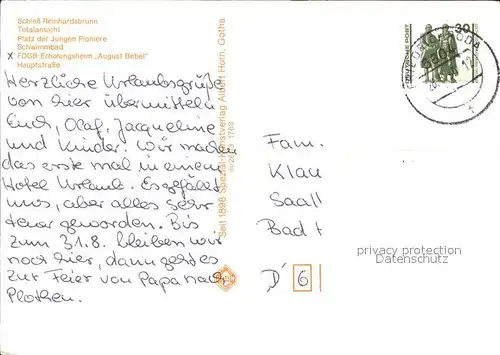 Schloß Reinhardsbrunn
Totalansicht
Platz der Jungen Pioniere
Schwimmbad
x FDGB-Erholungsheim „August Bebel"
Hauptstraße
Herzliche Urlaubsgrüße
von hier übermitteln
Euch, Olaf, Jacqueline
und Kinder. Wir machen
das erste mal in einem
Hotel Urlaub. Es gefällt
uns, aber alles sehr
teuer geworden. Bis
zum 31.8. bleiben wir
noch hier, dann geht es
zur Feier von Papa nach
Plothen.
Seit 1898 Spezial-Kunstverlag Albert Horn, Gotha
DEUTSCHE POST
30
Fam.
Klau
Saalf
Bad
D 6
privacy protection
Datenschutz